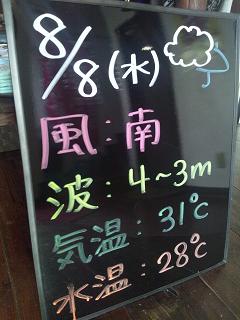 8/8(水)
風：南
波：4～3m
気温：31℃
水温：28℃